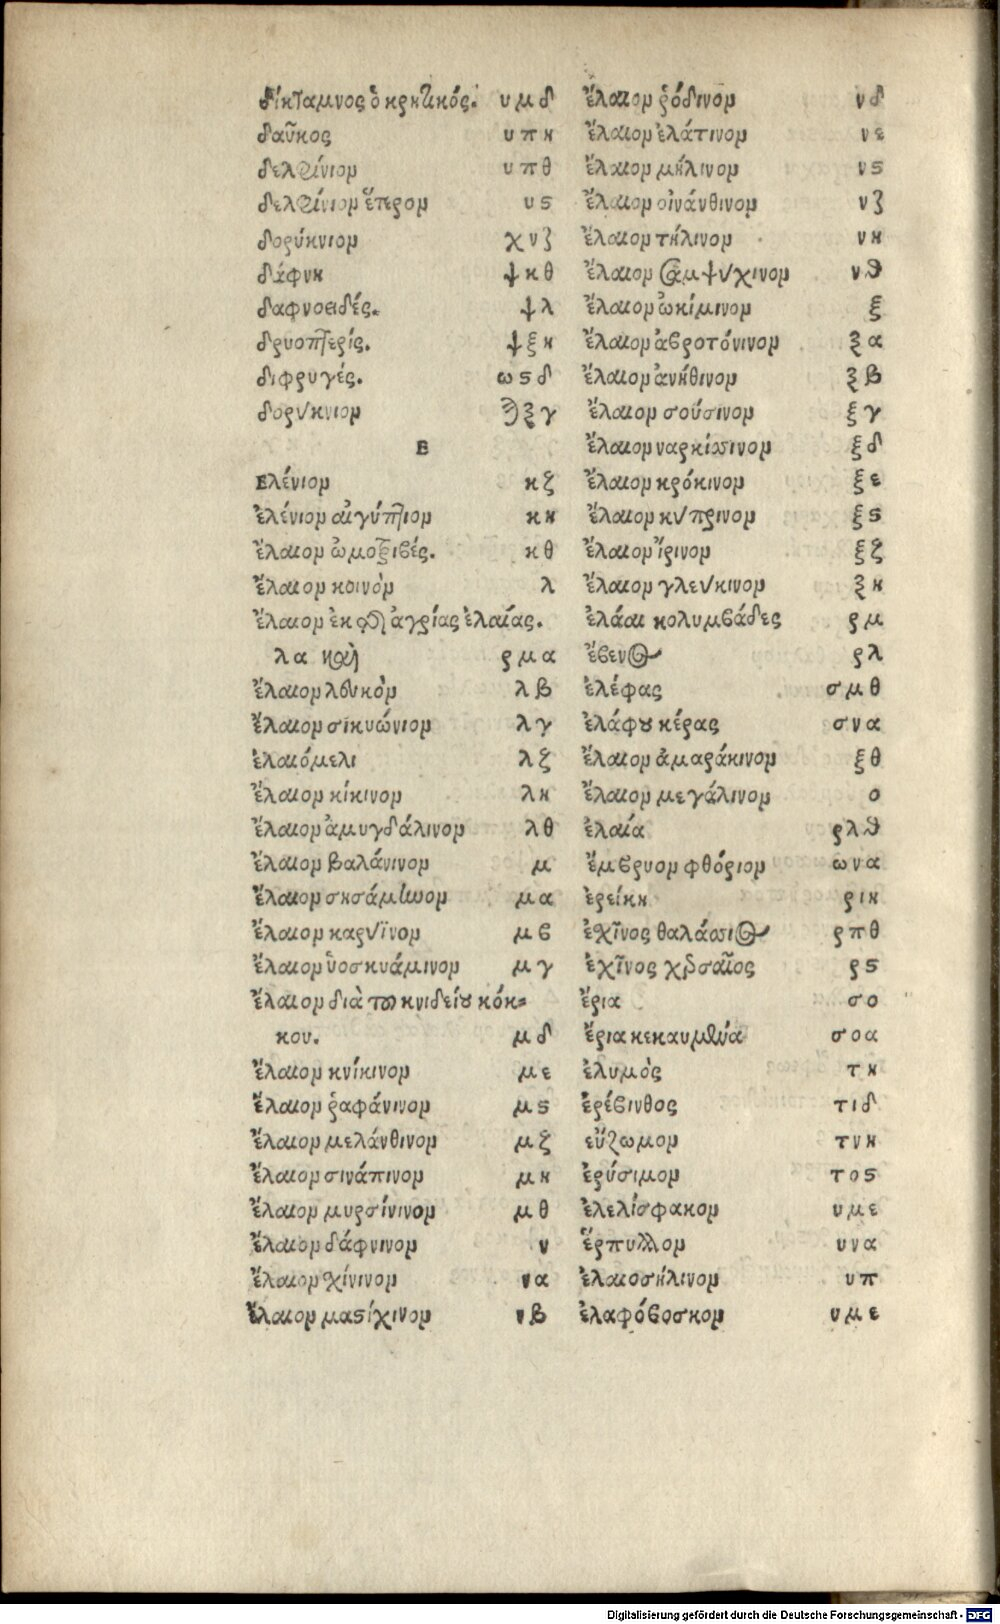 δίκταμνος ὁ κρητικός. υμδ
δαῦκος υπη
δελφίνιον υπθ
δελφίνιον ἕτερον υς
δορύκνιον χνζ
δάφνη ψκθ
δαφνοειδές. ψλ
δρυοπτερίς. ψξη
διφρυγές. ωςδ
δορύκνιον ϡξγ
Ε
Ελένιον κζ
ἑλένιον αἰγύπτιον κη
ἔλαιον ὠμοτριβές. κθ
ἔλαιον κοινὸν λ
ἔλαιον ἐκ τῆς ἀγρίας ἐλαίας.
λα καὶ ρμα
ἔλαιον λευκὸν λβ
ἔλαιον σικυώνιον λγ
ἐλαιόμελι λζ
ἔλαιον κίκινον λη
ἔλαιον ἀμυγδάλινον λθ
ἔλαιον βαλάνινον μ
ἔλαιον σησάμινον μα
ἔλαιον καρύϊνον μβ
ἔλαιον ὑοσκυάμινον μγ
ἔλαιον διὰ τοῦ κνιδείου κόκ-
κου. μδ
ἔλαιον κνίκινον με
ἔλαιον ῥαφάνινον μς
ἔλαιον μελάνθινον μζ
ἔλαιον σινάπινον μη
ἔλαιον μυρσίνινον μθ
ἔλαιον δάφνινον ν
ἔλαιον χίνινον να
ἔλαιον μαστίχινον νβ
ἔλαιον ῥόδινον νδ
ἔλαιον ἐλάτινον νε
ἔλαιον μήλινον νς
ἔλαιον οἰνάνθινον νζ
ἔλαιον τήλινον νη
ἔλαιον σαμψύχινον νθ
ἔλαιον ὠκίμινον ξ
ἔλαιον ἀβροτόνινον ξα
ἔλαιον ἀνήθινον ξβ
ἔλαιον σούσινον ξγ
ἔλαιον ναρκίσσινον ξδ
ἔλαιον κρόκινον ξε
ἔλαιον κύπρινον ξς
ἔλαιον ἴρινον ξζ
ἔλαιον γλεύκινον ξη
ἐλάαι κολυμβάδες ρμ
ἔβενος ρλ
ἐλέφας σμθ
ἐλάφου κέρας σνα
ἔλαιον ἀμαράκινον ξθ
ἔλαιον μεγάλινον ο
ἐλαία ρλθ
ἔμβρυον φθόριον ωνα
ἐρείκη ριη
ἐχῖνος θαλάσσιος ρπθ
ἐχῖνος χερσαῖος ρς
ἔρια σο
ἔρια κεκαυμένα σοα
ἐλυμὸς τη
ἐρέβινθος τιδ
εὔζωμον τνη
ἐρύσιμον τος
ἐλελίσφακον υμε
ἕρπυλλον υνα
ἐλαιοσήλινον υπ
ἐλαφόβοσκον υμε
Digitalisierung gefördert durch die Deutsche Forschungsgemeinschaft - DFG